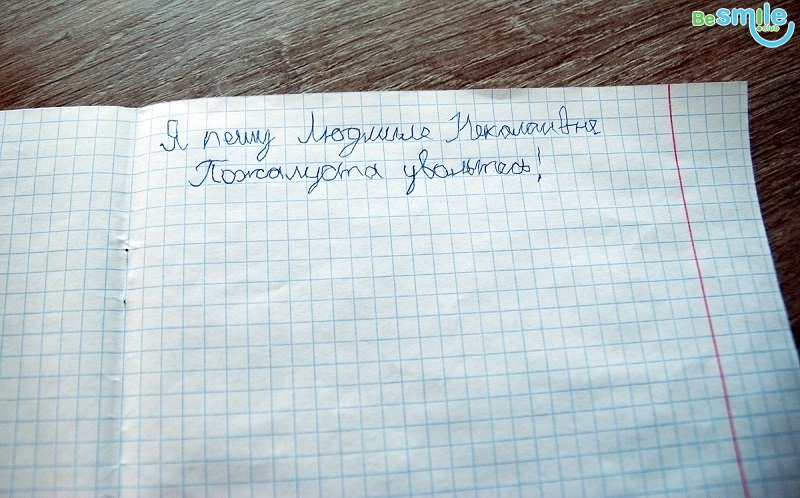 Besmile.club
Я пешу Людмиле Неколаивне
Пожалуста увольтесь!